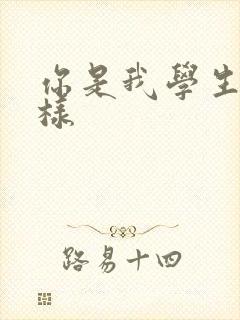 你是我學生
樣
路易十四